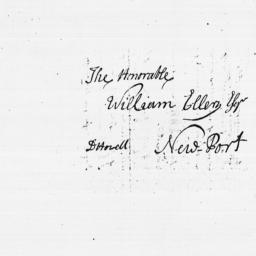 The Honorable
William Ellery Esqr
DHowell New-Port